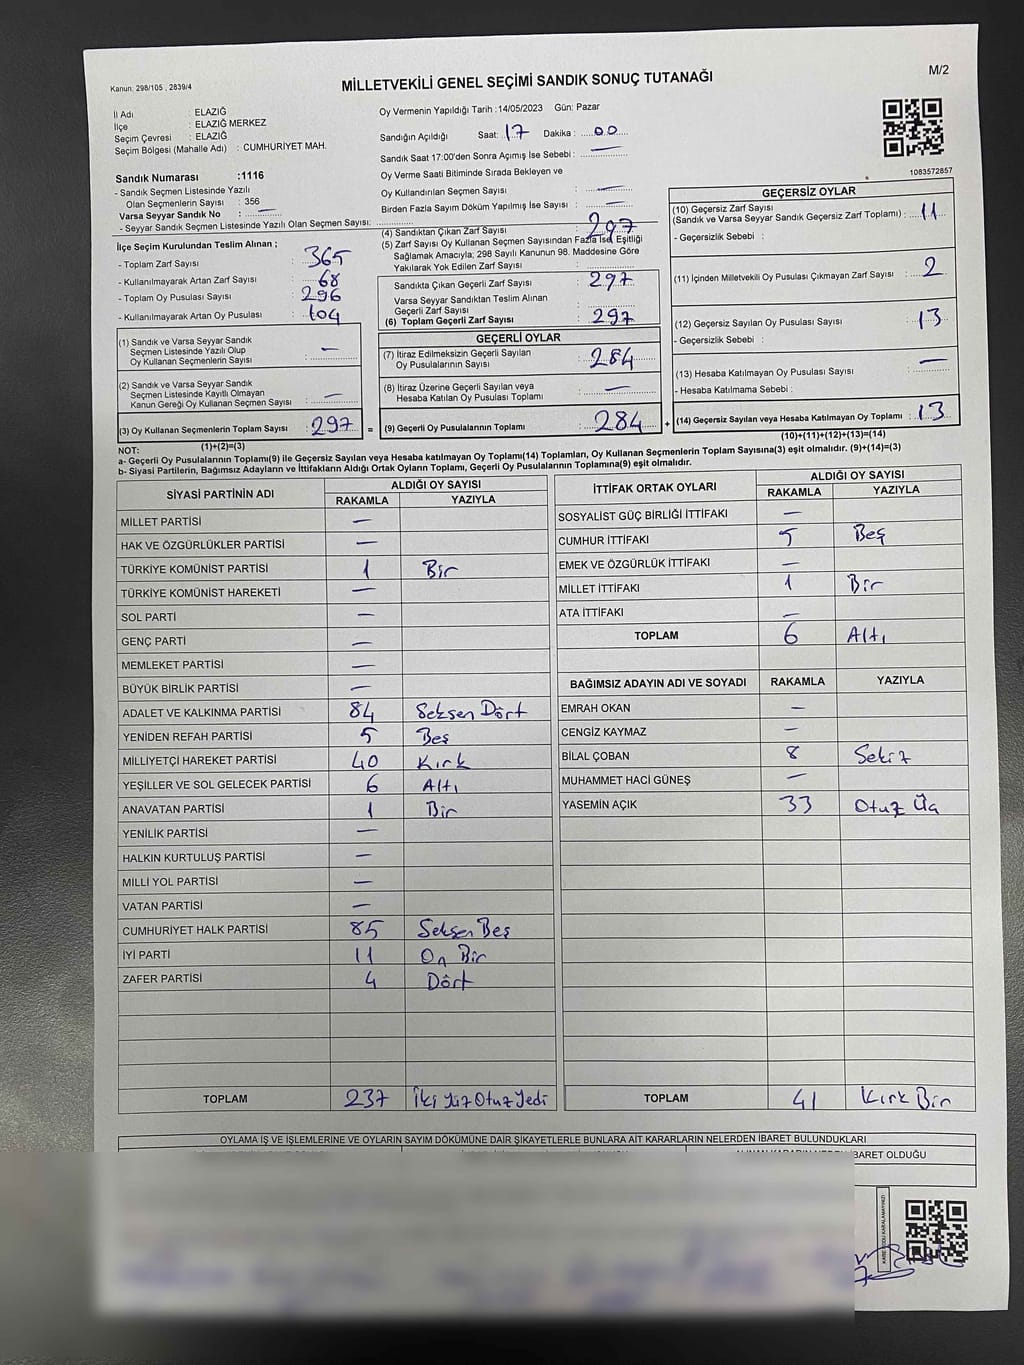 Kanun. 298/105 , 2839/4
MİLLETVEKİLİ GENEL SEÇİMİ SANDIK SONUÇ TUTANAĞI
M/2
İl Adı : ELAZIĞ
İlçe : ELAZIĞ MERKEZ
Seçim Çevresi : ELAZIĞ
Seçim Bölgesi (Mahalle Adı) : CUMHURİYET MAH.
Sandık Numarası :1116
- Sandık Seçmen Listesinde Yazılı
Olan Seçmenlerin Sayısı : 356
Varsa Seyyar Sandık No : —
- Seyyar Sandık Seçmen Listesinde Yazılı Olan Seçmen Sayısı:
Oy Vermenin Yapıldığı Tarih :14/05/2023 Gün: Pazar
Sandığın Açıldığı Saat: 17 Dakika : 00
Sandık Saat 17:00'den Sonra Açımış İse Sebebi : —
Oy Verme Saati Bitiminde Sırada Bekleyen ve
Oy Kullandırılan Seçmen Sayısı : —
Birden Fazla Sayım Döküm Yapılmış İse Sayısı : —
1083572857
İlçe Seçim Kurulundan Teslim Alınan ;
- Toplam Zarf Sayısı : 365
- Kullanılmayarak Artan Zarf Sayısı : 68
- Toplam Oy Pusulası Sayısı : 296
- Kullanılmayarak Artan Oy Pusulası : 104
(1) Sandık ve Varsa Seyyar Sandık
Seçmen Listesinde Yazılı Olup
Oy Kullanan Seçmenlerin Sayısı : —
(2) Sandık ve Varsa Seyyar Sandık
Seçmen Listesinde Kayıtlı Olmayan
Kanun Gereği Oy Kullanan Seçmen Sayısı : —
(3) Oy Kullanan Seçmenlerin Toplam Sayısı : 297
(1)+(2)=(3)
(4) Sandıktan Çıkan Zarf Sayısı : 297
(5) Zarf Sayısı Oy Kullanan Seçmen Sayısından Fazla İse Eşitliği
Sağlamak Amacıyla; 298 Sayılı Kanunun 98. Maddesine Göre
Yakılarak Yok Edilen Zarf Sayısı :
Sandıkta Çıkan Geçerli Zarf Sayısı : 297
Varsa Seyyar Sandıktan Teslim Alınan
Geçerli Zarf Sayısı :
(6) Toplam Geçerli Zarf Sayısı : 297
GEÇERLİ OYLAR
(7) İtiraz Edilmeksizin Geçerli Sayılan
Oy Pusulalarının Sayısı : 284
(8) İtiraz Üzerine Geçerli Sayılan veya
Hesaba Katılan Oy Pusulası Toplamı : —
= (9) Geçerli Oy Pusulalarının Toplamı : 284 +
GEÇERSİZ OYLAR
(10) Geçersiz Zarf Sayısı
(Sandık ve Varsa Seyyar Sandık Geçersiz Zarf Toplamı) : 11
- Geçersizlik Sebebi :
(11) İçinden Milletvekili Oy Pusulası Çıkmayan Zarf Sayısı : 2
(12) Geçersiz Sayılan Oy Pusulası Sayısı : 13
- Geçersizlik Sebebi :
(13) Hesaba Katılmayan Oy Pusulası Sayısı : —
- Hesaba Katılmama Sebebi :
(14) Geçersiz Sayılan veya Hesaba Katılmayan Oy Toplamı : 13
(10)+(11)+(12)+(13)=(14)
NOT:
a- Geçerli Oy Pusulalarının Toplamı(9) ile Geçersiz Sayılan veya Hesaba katılmayan Oy Toplamı(14) Toplamları, Oy Kullanan Seçmenlerin Toplam Sayısına(3) eşit olmalıdır. (9)+(14)=(3)
b- Siyasi Partilerin, Bağımsız Adayların ve İttifakların Aldığı Ortak Oyların Toplamı, Geçerli Oy Pusulalarının Toplamına(9) eşit olmalıdır.
SİYASİ PARTİNİN ADI ALDIĞI OY SAYISI
RAKAMLA YAZIYLA
MİLLET PARTİSİ —
HAK VE ÖZGÜRLÜKLER PARTİSİ —
TÜRKİYE KOMÜNİST PARTİSİ 1 Bir
TÜRKİYE KOMÜNİST HAREKETİ —
SOL PARTİ —
GENÇ PARTİ —
MEMLEKET PARTİSİ —
BÜYÜK BİRLİK PARTİSİ —
ADALET VE KALKINMA PARTİSİ 84 Seksen Dört
YENİDEN REFAH PARTİSİ 5 Beş
MİLLİYETÇİ HAREKET PARTİSİ 40 Kırk
YEŞİLLER VE SOL GELECEK PARTİSİ 6 Altı
ANAVATAN PARTİSİ 1 Bir
YENİLİK PARTİSİ —
HALKIN KURTULUŞ PARTİSİ —
MİLLİ YOL PARTİSİ —
VATAN PARTİSİ —
CUMHURİYET HALK PARTİSİ 85 Seksen Beş
İYİ PARTİ 11 On Bir
ZAFER PARTİSİ 4 Dört
TOPLAM 237 İki Yüz Otuz Yedi
İTTİFAK ORTAK OYLARI ALDIĞI OY SAYISI
RAKAMLA YAZIYLA
SOSYALİST GÜÇ BİRLİĞİ İTTİFAKI —
CUMHUR İTTİFAKI 5 Beş
EMEK VE ÖZGÜRLÜK İTTİFAKI —
MİLLET İTTİFAKI 1 Bir
ATA İTTİFAKI —
TOPLAM 6 Altı
BAĞIMSIZ ADAYIN ADI VE SOYADI RAKAMLA YAZIYLA
EMRAH OKAN —
CENGİZ KAYMAZ —
BİLAL ÇOBAN 8 Sekiz
MUHAMMET HACİ GÜNEŞ —
YASEMİN AÇIK 33 Otuz Üç
TOPLAM 41 Kırk Bir
OYLAMA İŞ VE İŞLEMLERİNE VE OYLARIN SAYIM DÖKÜMÜNE DAİR ŞİKAYETLERLE BUNLARA AİT KARARLARIN NELERDEN İBARET BULUNDUKLARI
BARET OLDUĞU
KARE KODU KARALAMAYINIZ!